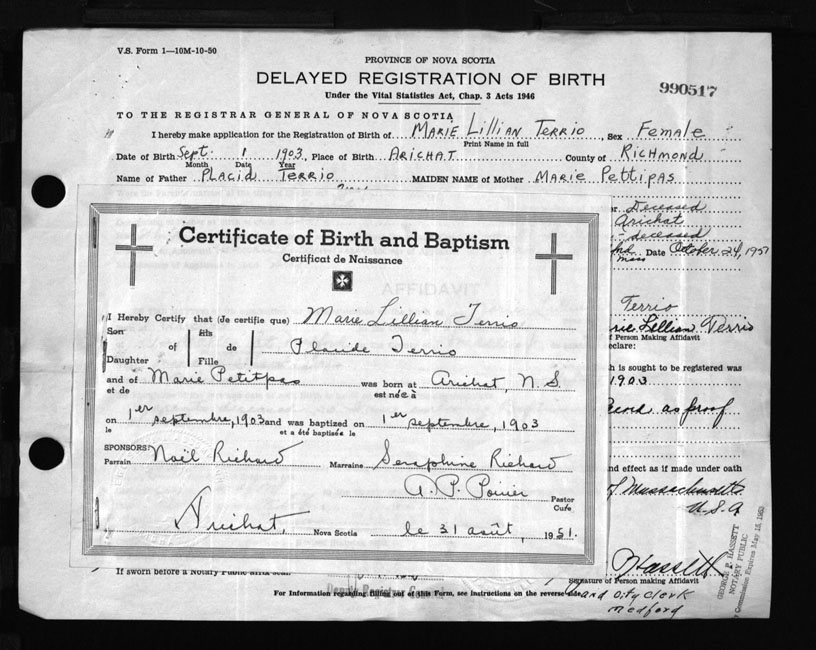 V.S. Form 1—10M-10-50
PROVINCE OF NOVA SCOTIA
DELAYED REGISTRATION OF BIRTH
990517
Under the Vital Statistics Act, Chap. 3 Acts 1946
TO THE REGISTRAR GENERAL OF NOVA SCOTIA
I hereby make application for the Registration of Birth of MARIE LILLIAN TERRIO, Sex Female
Print Name in full
Date of Birth Sept. 1 1903, Place of Birth ARICHAT County of RICHMOND
Month Date Year
Name of Father PLACID TERRIO MAIDEN NAME of Mother MARIE PETTIPAS
Deceased
Arichat
deceased
Date October 24, 1951
Mass
Certificate of Birth and Baptism
Certificat de Naissance
AFFIDAVIT
I Hereby Certify that (Je certifie que) Marie Lillian Terrio
Son of fils de Placide Terrio
Daughter Fille
and of Marie Petitpas was born at Arichat, N.S.
et de est né(e à
on 1er septembre, 1903 and was baptized on 1er septembre, 1903
le et a été baptisée le
SPONSORS:
Parrain Noël Richard Marraine Seraphine Richard
A. P. Poirier Pastor
Curé
Arichat, Nova Scotia le 31 août, 1951.
Terrio
Marie Lillian Terrio
of Person Making Affidavit
declare:
is sought to be registered was
1903
as proof
and effect as if made under oath
of Massachusetts
U.S.A
Hassett
Signature of Person making Affidavit
and City Clerk
Medford
GEORGE P. HASSETT
NOTARY PUBLIC
Commission Expires May
If sworn before a Notary Public affix seal.
For Information regarding filling out of this Form, see instructions on the reverse side